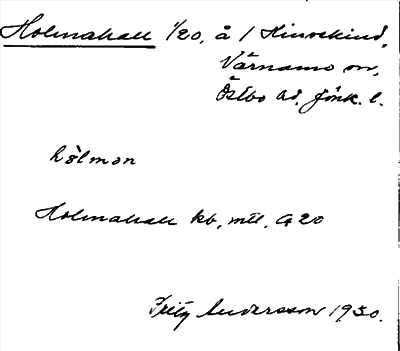 Holmahall 1/20, å 1 Hinsekind,
Värnamo sn,
Östbo hd. Jönk. l.
hòlmən
Holmahall kb, mtl, G 20
Fritz Andersson 1930.